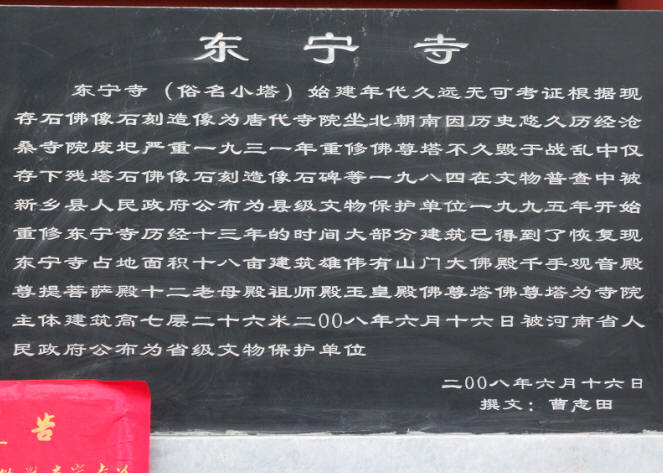 东宁寺
东宁寺（俗名小塔）始建年代久远无可考证根据现
存石佛像石刻造像为唐代寺院坐北朝南因历史悠久历经沧
桑寺院废圯严重一九三一年重修佛尊塔不久毁于战乱中仅
存下残塔石佛像石刻造像石碑等一九八四在文物普查中被
新乡县人民政府公布为县级文物保护单位一九九五年开始
重修东宁寺历经十三年的时间大部分建筑已得到了恢复现
东宁寺占地面积十八亩建筑雄伟有山门大佛殿千手观音殿
尊提菩萨殿十二老母殿祖师殿玉皇殿佛尊塔佛尊塔为寺院
主体建筑高七层二十六米二00八年六月十六日被河南省人
民政府公布为省级文物保护单位
二00八年六月十六日
撰文：曹志田
告